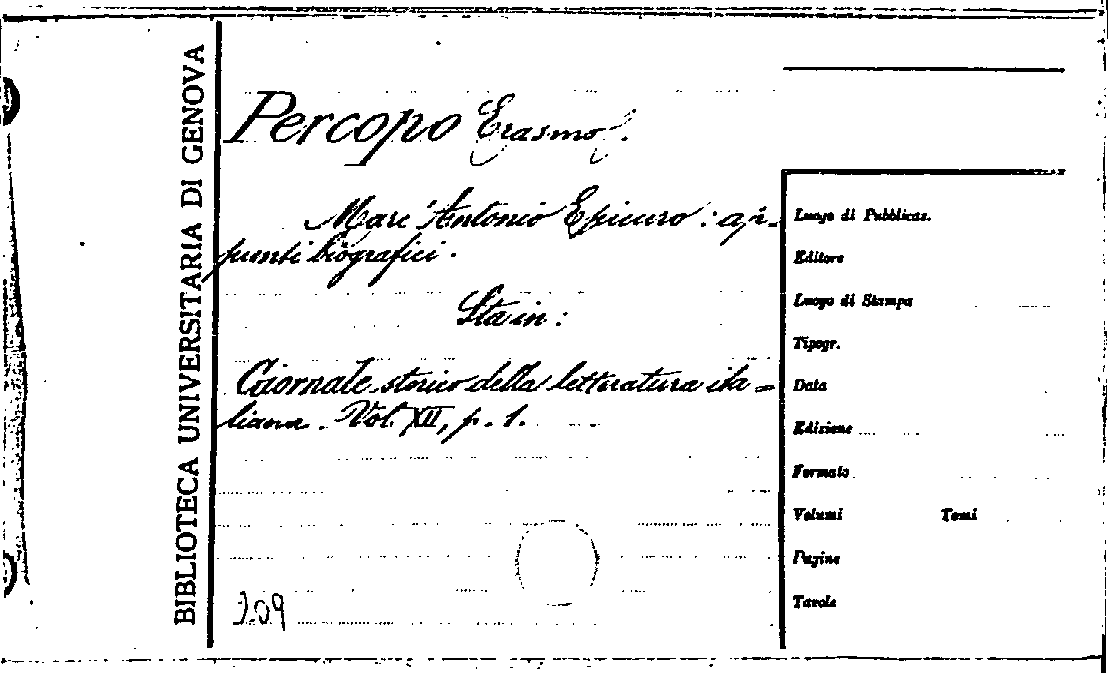 BIBLIOTECA UNIVERSITARIA DI GENOVA
Percopo Erasmo.
Marc'Antonio Epicuro: ap-
punti biografici.
Sta in:
Giornale storico della letteratura ita=
liana. Vol. XII, p. 1.
209
Luogo di Pubblicaz.
Editore
Luogo di Stampa
Tipogr.
Data
Edizione
Formato
Volumi Tomi
Pagine
Tavole